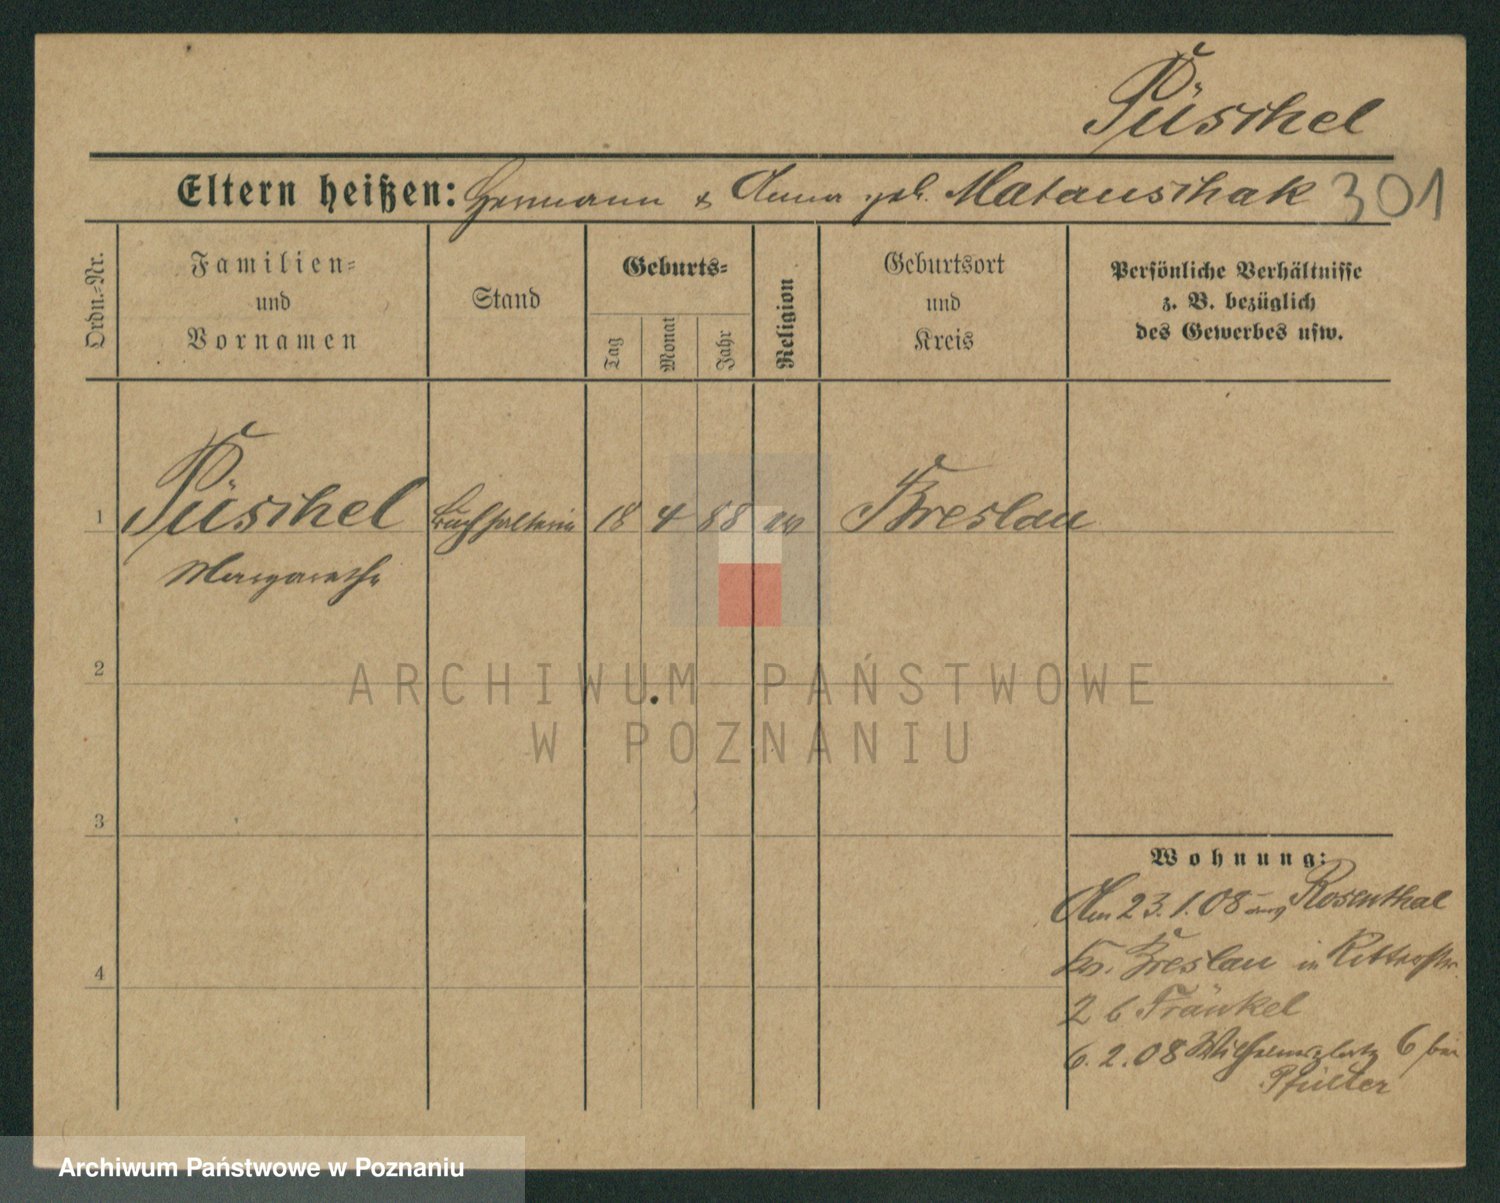 Püschel
Eltern heißen: Hermann & Anna geb. Matauschak 301
Ordn.-Nr.
Familien-
und
Vornamen
Stand
Geburts-
Tag
Monat
Jahr
Religion
Geburtsort
und
Kreis
Persönliche Verhältnisse
z. B. bezüglich
des Gewerbes usw.
1 Püschel Buchhalterin 18 4 88 ev Breslau
Margarethe
2
ARCHIWUM PAŃSTWOWE
W POZNANIU
3
Wohnung:
Am 23.1.08 aus Rosenthal
Kr. Breslau in Ritterstr.
4
2 b Fränkel
6.2.08 Wilhelmsplatz 6 bei
Archiwum Państwowe w Poznaniu